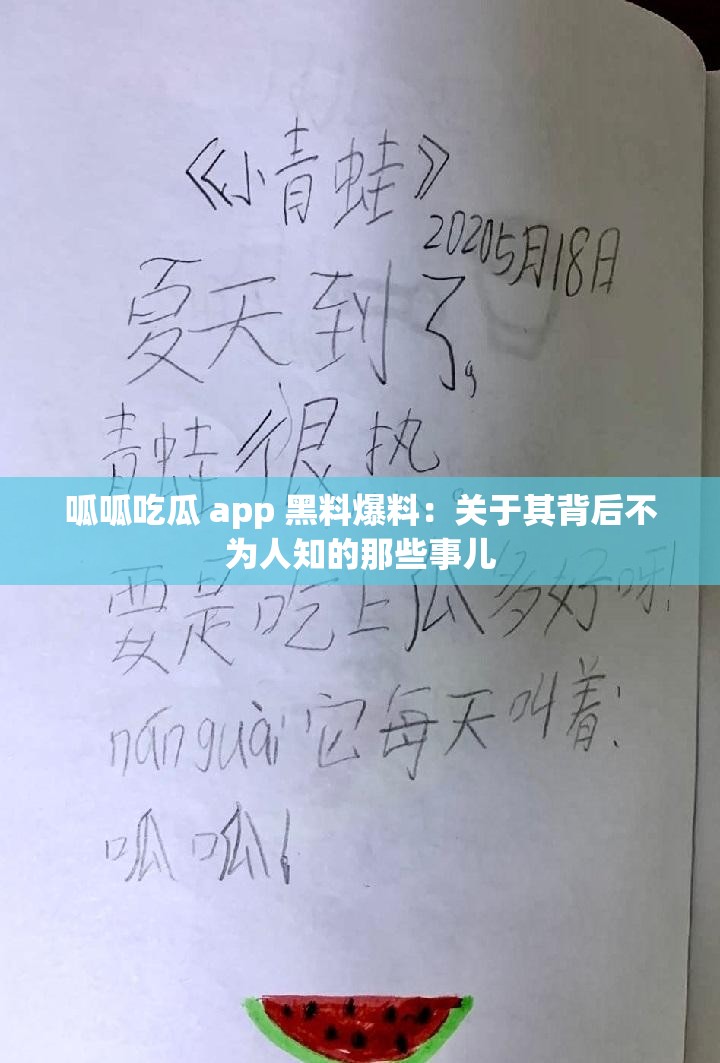 《小青蛙》
20205月18日
夏天到了,
青蛙很执。
呱呱吃瓜 app 黑料爆料：关于其背后不
为人知的那些事儿
要是吃上瓜多好呀!
nánguài它每天叫着:
呱呱!